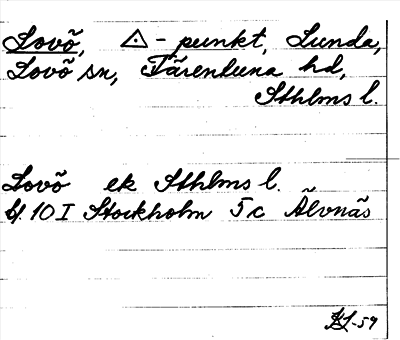 Lovö, △ - punkt, Lunda,
Lovö sn, Färentuna hd,
Sthlms l.
Lovö ek Sthlms l.
bl. 10 I Stockholm 5c Älvnäs
-59